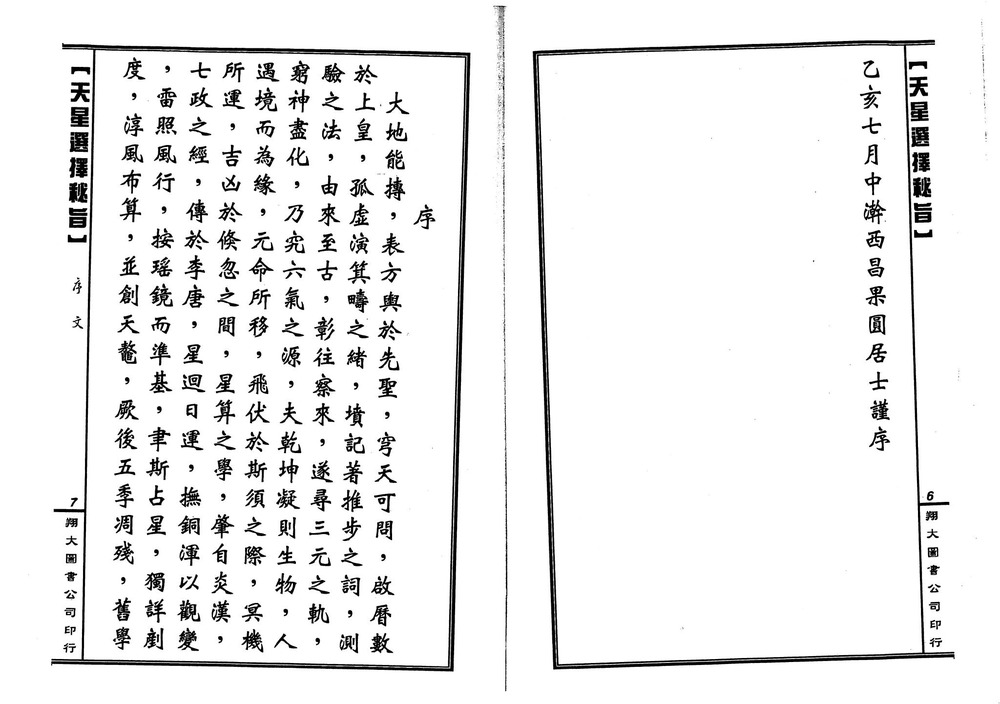 【天星選擇秘旨】
乙亥七月中澣西昌果圓居士謹序
6
翔大圖書公司印行
序
大地能摶，表方輿於先聖，穹天可問，啟曆數
於上皇，孤虛演箕疇之緒，墳記著推步之詞，測
驗之法，由來至古，彰往察來，遂尋三元之軌，
窮神盡化，乃究六氣之源，夫乾坤凝則生物，人
遇境而為緣，元命所移，飛伏於斯須之際，冥機
所運，吉凶於倏忽之間，星算之學，肇自炎漢，
七政之經，傳於李唐，星迴日運，撫銅渾以觀變
，雷照風行，按瑤鏡而準基，聿斯占星，獨詳剷
度，淳風布算，並創天鼇，厥後五季凋殘，舊學
【天星選擇秘旨】
序文
7
翔大圖書公司印行